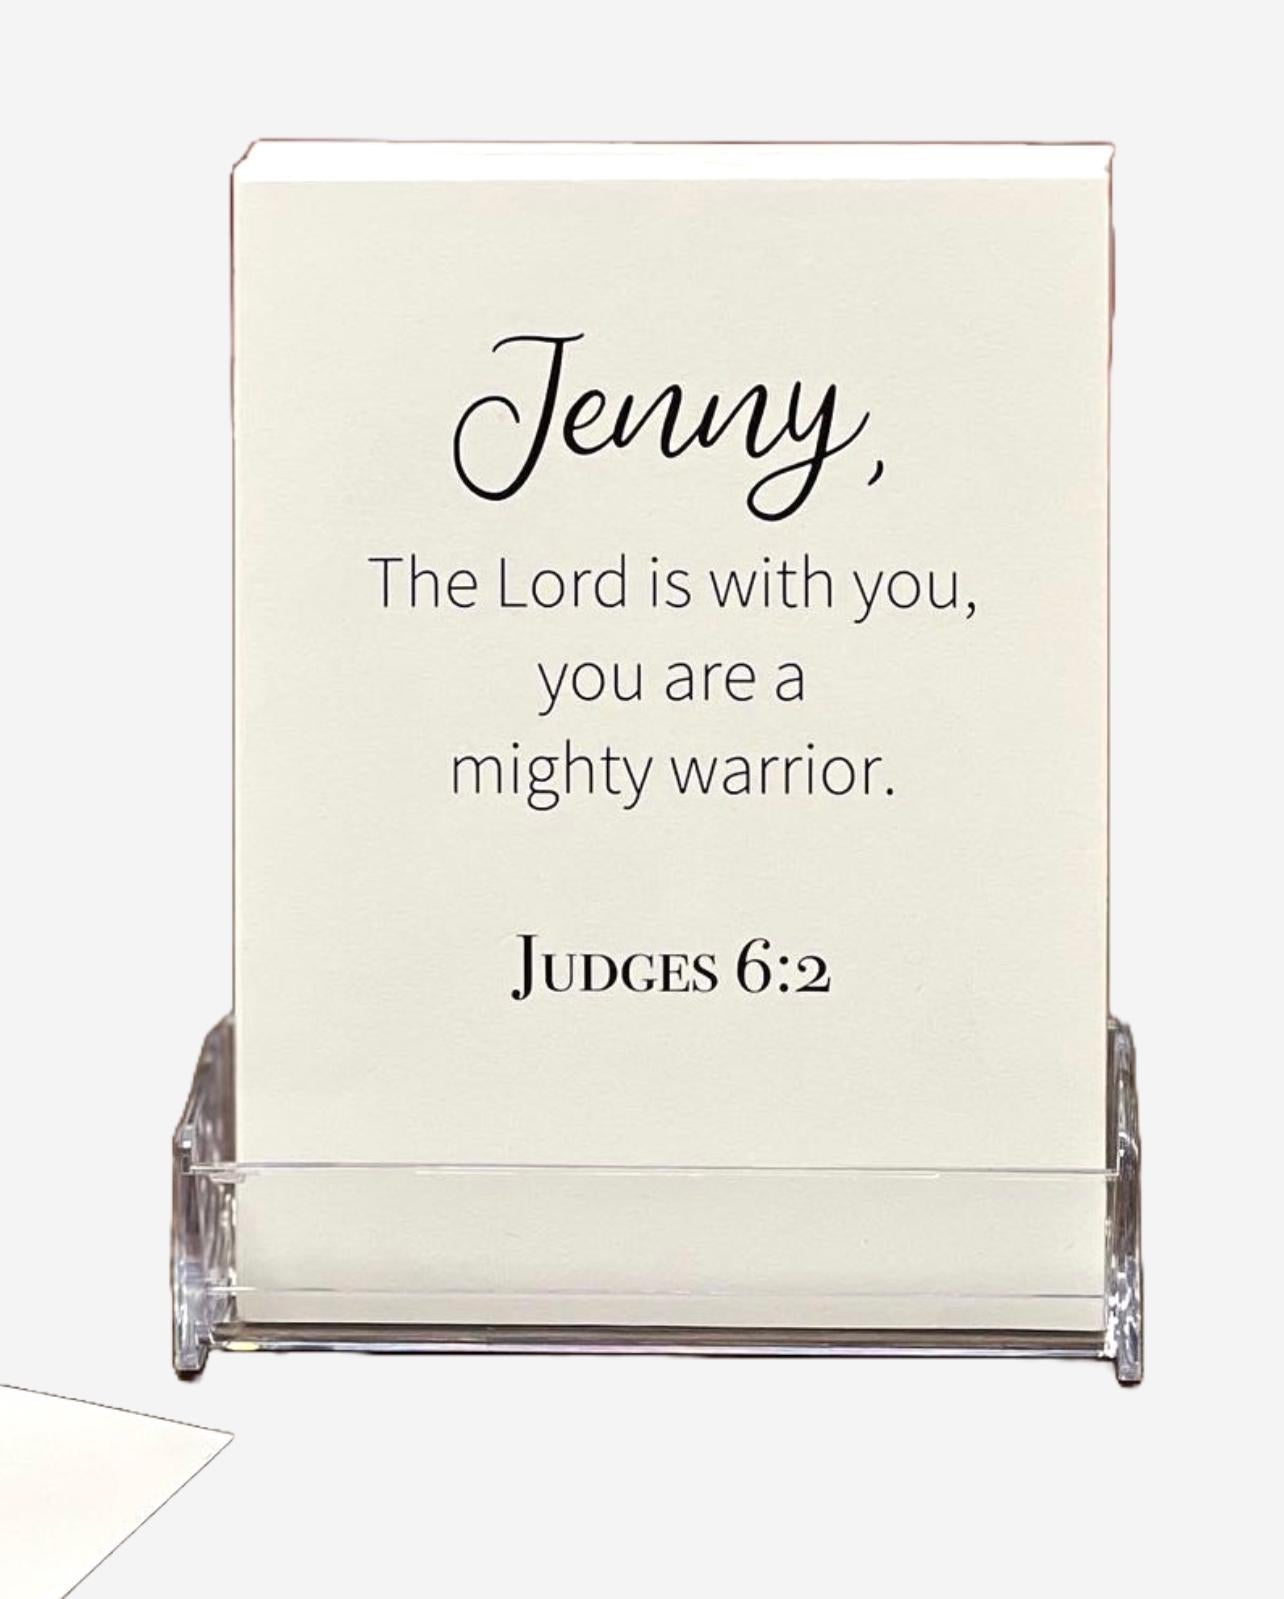 Jenny,
The Lord is with you,
you are a
mighty warrior.
Judges 6:2